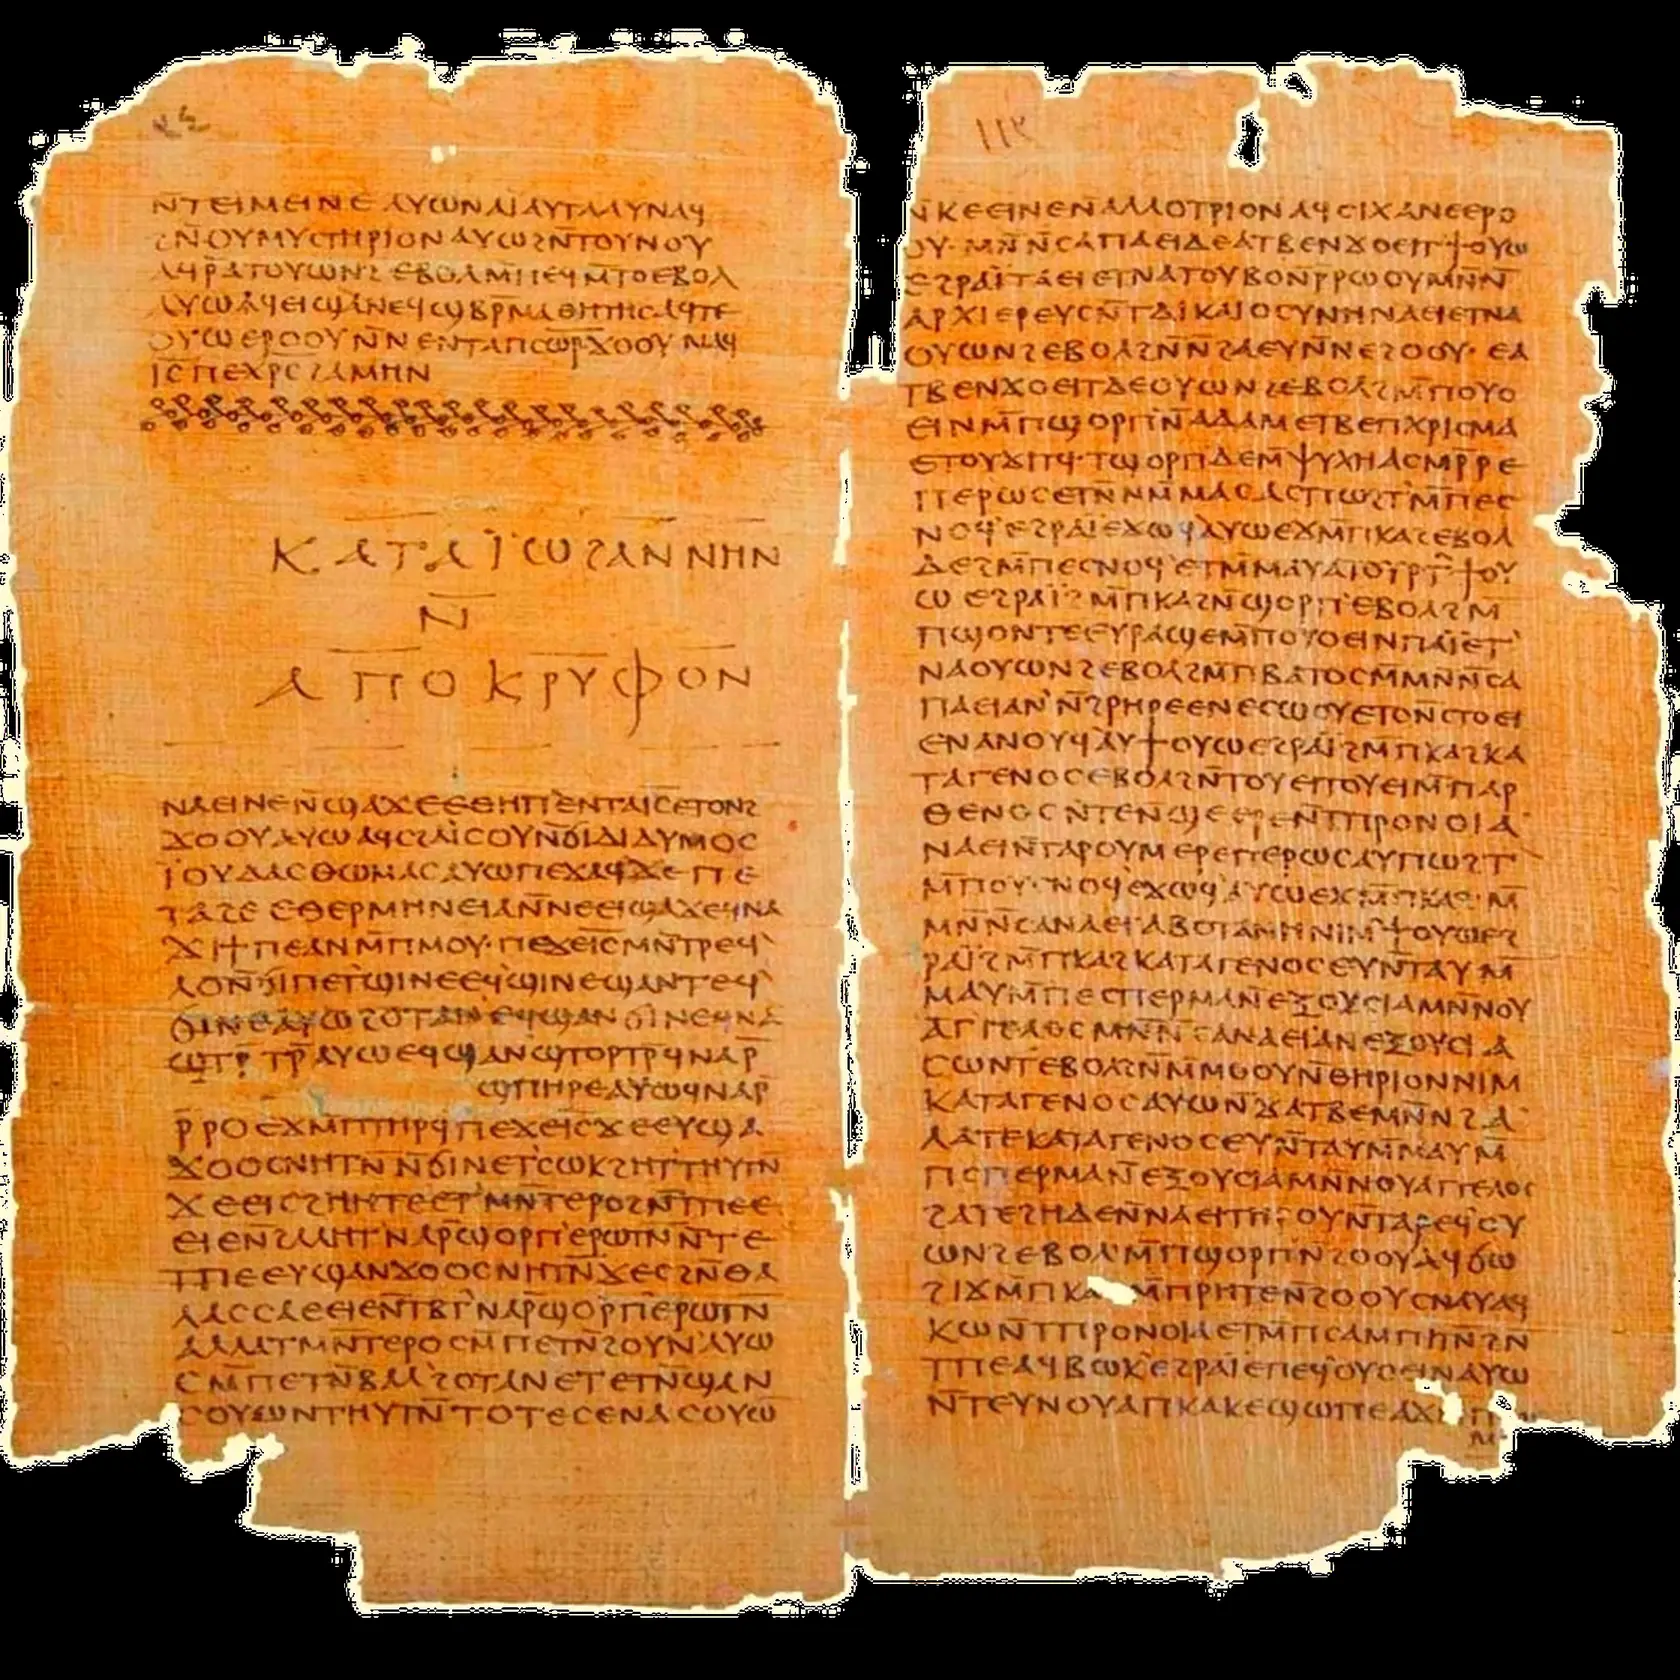 ⲛ̄ⲧⲉⲓⲙⲉⲓⲛⲉ ⲁⲩⲱ ⲛⲁⲓ̈ ⲁⲩⲧⲁⲁⲩ ⲛⲁϥ
ϩⲛ̄ ⲟⲩⲙⲩⲥⲧⲏⲣⲓⲟⲛ ⲁⲩⲱ ϩⲛ̄ ⲧⲟⲩⲛⲟⲩ
ⲁϥⲣ̄ ⲁⲧⲟⲩⲱⲛϩ ⲉⲃⲟⲗ ⲙ̄ⲡⲉϥⲙ̄ⲧⲟ ⲉⲃⲟⲗ
ⲁⲩⲱ ⲁϥⲉⲓ ϣⲁ ⲛⲉϥϣⲃⲣ̄ⲙⲁⲑⲏⲧⲏⲥ ⲁϥϯⲉ
ⲟⲩⲱ ⲉⲣⲟⲟⲩ ⲛ̄ⲛⲉⲛⲧⲁ ⲡⲥⲱ̄ⲣ̄ ϫⲟⲟⲩ ⲛⲁϥ
ⲓ̄ⲥ̄ ⲡⲉⲭ̄ⲣ̄ⲥ̄ ϩⲁⲙⲏⲛ
ⲕⲁⲧⲁ ⲓ̈ⲱϩⲁⲛⲛⲏⲛ
ⲛ̄
ⲁⲡⲟⲕⲣⲩⲫⲟⲛ
ⲛⲁⲉⲓ ⲛⲉ ⲛ̄ϣⲁϫⲉ ⲉⲑⲏⲡ ⲉⲛⲧⲁ ⲓ̄ⲥ̄ ⲉⲧⲟⲛϩ
ϫⲟⲟⲩ ⲁⲩⲱ ⲁϥⲥϩⲁⲓ̈ⲥⲟⲩ ⲛ̄ϭⲓ ⲇⲓⲇⲩⲙⲟⲥ
ⲓ̈ⲟⲩⲇⲁⲥ ⲑⲱⲙⲁⲥ ⲁⲩⲱ ⲡⲉϫⲁϥ ϫⲉ ⲡⲉ
ⲧⲁϩⲉ ⲉⲑⲉⲣⲙⲏⲛⲉⲓⲁ ⲛ̄ⲛⲉⲉⲓϣⲁϫⲉ ϥⲛⲁ
ϫⲓ ϯⲡⲉ ⲁⲛ ⲙ̄ⲡⲙⲟⲩ· ⲡⲉϫⲉ ⲓ̄ⲥ̄ ⲙⲛ̄ⲧⲣⲉϥ
ⲗⲟ ⲛ̄ϭⲓ ⲡⲉⲧϣⲓⲛⲉ ⲉϥϣⲓⲛⲉ ϣⲁⲛⲧⲉϥ
ϭⲓⲛⲉ ⲁⲩⲱ ϩⲟⲧⲁⲛ ⲉϥϣⲁⲛϭⲓⲛⲉ ϥⲛⲁ
ϣⲧⲣ̄ⲧⲣ̄ ⲁⲩⲱ ⲉϥϣⲁⲛϣⲧⲟⲣⲧⲣ̄ ϥⲛⲁⲣ̄
ϣⲡⲏⲣⲉ ⲁⲩⲱ ϥⲛⲁⲣ̄
ⲣ̄ⲣⲟ ⲉϫⲙ̄ ⲡⲧⲏⲣϥ ⲡⲉϫⲉ ⲓ̄ⲥ̄ ϫⲉ ⲉⲩϣⲁ
ϫⲟⲟⲥ ⲛⲏⲧⲛ̄ ⲛ̄ϭⲓ ⲛⲉⲧⲥⲱⲕ ϩⲏⲧ ⲑⲏⲩⲧⲛ̄
ϫⲉ ⲉⲓⲥϩⲏⲏⲧⲉ ⲉⲧⲙⲛ̄ⲧⲉⲣⲟ ϩⲛ̄ ⲧⲡⲉ ⲉ
ⲉⲓⲉ ⲛ̄ϩⲁⲗⲏⲧ ⲛⲁⲣ̄ ϣⲟⲣⲡ ⲉⲣⲱⲧⲛ̄ ⲛ̄ⲧⲉ
ⲧⲡⲉ ⲉⲩϣⲁⲛϫⲟⲟⲥ ⲛⲏⲧⲛ̄ ϫⲉ ⲥϩⲛ̄ ⲑⲁ
ⲗⲁⲥⲥⲁ ⲉⲉⲓⲉ ⲛ̄ⲧⲃ̄ⲧ ⲛⲁⲣ̄ ϣⲟⲣⲡ ⲉⲣⲱⲧⲛ̄
ⲁⲗⲗⲁ ⲧⲙⲛ̄ⲧⲉⲣⲟ ⲥⲙ̄ⲡⲉⲧⲛ̄ϩⲟⲩⲛ ⲁⲩⲱ
ⲥⲙ̄ⲡⲉⲧⲛ̄ⲃⲁⲗ ϩⲟⲧⲁⲛ ⲉⲧⲉⲧⲛ̄ϣⲁⲛ
ⲥⲟⲩⲱⲛ ⲧⲏⲩⲧⲛ̄ ⲧⲟⲧⲉ ⲥⲉⲛⲁⲥⲟⲩⲱ
ⲛ̄ⲕⲉⲉⲓⲛⲉ ⲛ̄ⲁⲗⲗⲟⲧⲣⲓⲟⲛ ⲁϥⲥⲓⲭⲁⲛⲉ ⲉⲣⲟ
ⲟⲩ· ⲙⲛ̄ⲛ̄ⲥⲁ ⲡⲁⲉⲓ ⲇⲉ ⲁⲧⲃⲉⲛϫⲟⲉⲓⲧ ϯⲟⲩⲱ
ⲉϩⲣⲁⲓ̈ ⲧⲁⲉⲓ ⲉⲧⲛⲁⲧⲟⲩⲃⲟ ⲛ̄ⲣ̄ⲣⲱⲟⲩ ⲙⲛ̄ ⲛ̄
ⲁⲣⲭⲓⲉⲣⲉⲩⲥ ⲛ̄ⲧⲇⲓⲕⲁⲓⲟⲥⲩⲛⲏ ⲛⲁⲉⲓ ⲉⲧⲛⲁ
ⲟⲩⲱⲛϩ ⲉⲃⲟⲗ ϩⲛ̄ ⲛ̄ϩⲁⲉⲩ ⲛ̄ⲛⲉϩⲟⲟⲩ· ⲉⲁ
ⲧⲃⲉⲛϫⲟⲉⲓⲧ ⲇⲉ ⲟⲩⲱⲛϩ ⲉⲃⲟⲗ ϩⲙ̄ ⲡⲟⲩⲟ
ⲉⲓⲛ ⲙ̄ⲡϣⲟⲣⲡ ⲛ̄ⲁⲇⲁⲙ ⲉⲧⲃⲉ ⲡⲭⲣⲓⲥⲙⲁ
ⲉⲧⲟⲩϫⲓⲧϥ· ⲧϣⲟⲣⲡ ⲇⲉ ⲙ̄ⲯⲩⲭⲏ ⲁⲥⲙⲣ̄ⲣⲉ
ⲡⲉⲣⲱⲥ ⲉⲧⲛⲙ̄ⲙⲁⲥ ⲁⲥⲡⲱϩⲧ ⲙ̄ⲡⲉⲥ
ⲥⲛⲟϥ ⲉϩⲣⲁⲓ̈ ⲉϫⲱϥ ⲁⲩⲱ ⲉϫⲙ̄ ⲡⲕⲁϩ ⲉⲃⲟⲗ
ⲇⲉ ϩⲙ̄ ⲡⲉⲥⲛⲟϥ ⲉⲧⲙ̄ⲙⲁⲩ ⲁⲡⲟⲩⲣⲧ ϯⲟⲩ
ⲱ ⲉϩⲣⲁⲓ̈ ϩⲙ̄ ⲡⲕⲁϩ ⲛ̄ϣⲟⲣⲡ ⲉⲃⲟⲗ ϩⲙ̄
ⲡϣⲟⲛⲧⲉ ⲉⲩⲣⲁϣⲉ ⲙ̄ⲡⲟⲩⲟⲉⲓⲛ ⲡⲁⲓ̈ ⲉⲧ
ⲛⲁⲟⲩⲱⲛϩ ⲉⲃⲟⲗ ϩⲙ̄ ⲡⲃⲁⲧⲟⲥ ⲙⲙⲛ̄ⲛ̄ⲥⲁ
ⲡⲁⲉⲓ ⲁⲛϩⲣⲏⲣⲉ ⲉⲛⲉⲥⲱⲟⲩ ⲉⲧⲟ ⲛ̄ⲥⲧⲟⲉⲓ
ⲉⲛⲁⲛⲟⲩϥ ⲁⲩϯⲟⲩⲱ ⲉϩⲣⲁⲓ̈ ϩⲙ̄ ⲡⲕⲁϩ ⲕⲁ
ⲧⲁ ⲅⲉⲛⲟⲥ ⲉⲃⲟⲗ ϩⲛ̄ ⲧⲟⲩⲉⲓ ⲧⲟⲩⲉⲓ ⲙ̄ⲡⲁⲣ
ⲑⲉⲛⲟⲥ ⲛ̄ⲧⲉ ⲛ̄ϣⲉⲉⲣⲉ ⲛ̄ⲧⲡⲣⲟⲛⲟⲓⲁ
ⲛⲁⲉⲓ ⲛ̄ⲧⲁⲣⲟⲩⲙⲉⲣⲉ ⲡⲉⲣⲱⲥ ⲁⲩⲡⲱϩⲧ
ⲙ̄ⲡⲟⲩⲥⲛⲟϥ ⲉϫⲱϥ ⲁⲩⲱ ⲉϫⲙ̄ ⲡⲕⲁϩ· ⲙ̄
ⲙⲛ̄ⲛ̄ⲥⲁ ⲛⲁⲉⲓ ⲁⲃⲟⲧⲁⲛⲏ ⲛⲓⲙ ϯⲟⲩⲱ ⲉϩ
ⲣⲁⲓ̈ ϩⲙ̄ ⲡⲕⲁϩ ⲕⲁⲧⲁ ⲅⲉⲛⲟⲥ ⲉⲩⲛ̄ⲧⲁⲩ ⲙ̄
ⲙⲁⲩ ⲙ̄ⲡⲉⲥⲡⲉⲣⲙⲁ ⲛ̄ⲛⲉⲝⲟⲩⲥⲓⲁ ⲙⲛ̄ ⲛⲟⲩ
ⲁⲅⲅⲉⲗⲟⲥ ⲙⲛ̄ⲛ̄ⲥⲁ ⲛⲁⲉⲓ ⲁⲛⲉⲝⲟⲩⲥⲓⲁ
ⲥⲱⲛⲧ ⲉⲃⲟⲗ ϩⲛ̄ ⲙⲙⲟⲟⲩ ⲛ̄ⲑⲏⲣⲓⲟⲛ ⲛⲓⲙ
ⲕⲁⲧⲁ ⲅⲉⲛⲟⲥ ⲁⲩⲱ ⲛ̄ϫⲁⲧⲃⲉ ⲙⲛ̄ ⲛ̄ϩⲁ
ⲗⲁⲧⲉ ⲕⲁⲧⲁ ⲅⲉⲛⲟⲥ ⲉⲩⲛ̄ⲧⲁⲩ ⲙ̄ⲙⲁⲩ ⲙ̄
ⲡⲥⲡⲉⲣⲙⲁ ⲛ̄ⲛⲉⲝⲟⲩⲥⲓⲁ ⲙⲛ̄ ⲛⲟⲩⲁⲅⲅⲉⲗⲟⲥ
ϩⲁⲧⲉϩⲏ ⲇⲉ ⲛ̄ⲛⲁⲉⲓ ⲧⲏⲣⲟⲩ ⲛ̄ⲧⲁⲣⲉϥⲟⲩ
ⲱⲛϩ ⲉⲃⲟⲗ ⲙ̄ⲡϣⲟⲣⲡ ⲛ̄ϩⲟⲟⲩ ⲁϥϭⲱ
ϩⲓϫⲙ̄ ⲡⲕⲁ ⲙ̄ⲡⲣⲏⲧⲉ ⲛ̄ϩⲟⲟⲩ ⲥⲛⲁⲩ ⲁϥ
ⲕⲱ ⲛ̄ⲧⲡⲣⲟⲛⲟⲓⲁ ⲉⲧⲙ̄ⲡⲥⲁⲙⲡⲓⲧⲛ̄ ϩⲛ̄
ⲧⲡⲉ ⲁϥⲃⲱⲕ ⲉϩⲣⲁⲓ̈ ⲉⲡⲉϥⲟⲩⲟⲉⲓⲛ ⲁⲩⲱ
ⲛ̄ⲧⲉⲩⲛⲟⲩ ⲁⲡⲕⲁⲕⲉ ϣⲱⲡⲉ ⲁϫⲛ̄